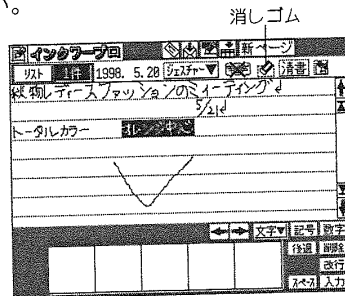 い。
消しゴム
インクワープロ 新ページ
リスト 1件 1998. 5.20 ジェスチャー▼ 清書
秋物レディースファッションのミィーティング↲
5/21↲
トータルカラー オレンジ中心
文字▼ 記号 数字
後退 削除
改行
スペース 入力